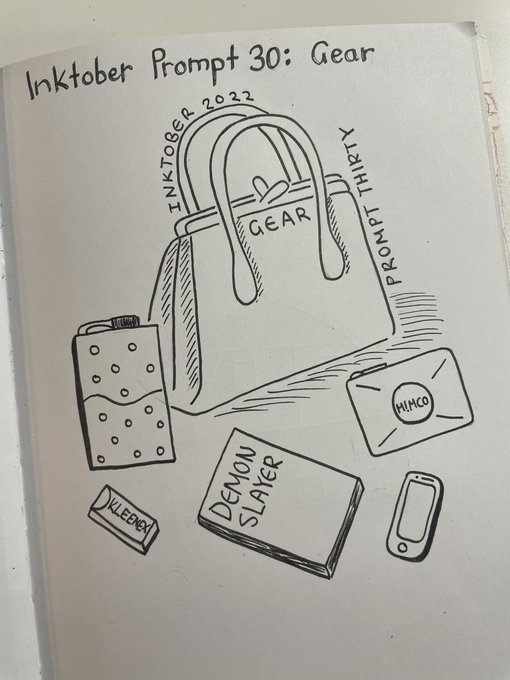 Inktober Prompt 30: Gear
INKTOBER 2022
PROMPT THIRTY
GEAR
MIMCO
DEMON
SLAYER
KLEENEX